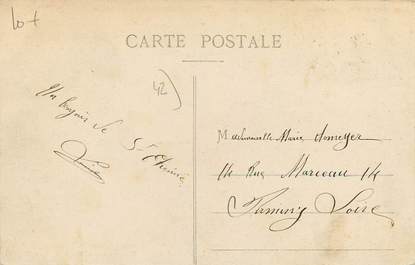 lot
CARTE POSTALE
42
Un bonjour de
St Etienne
Mademoiselle Marie
14 Rue Marceau 14
Firminy Loire